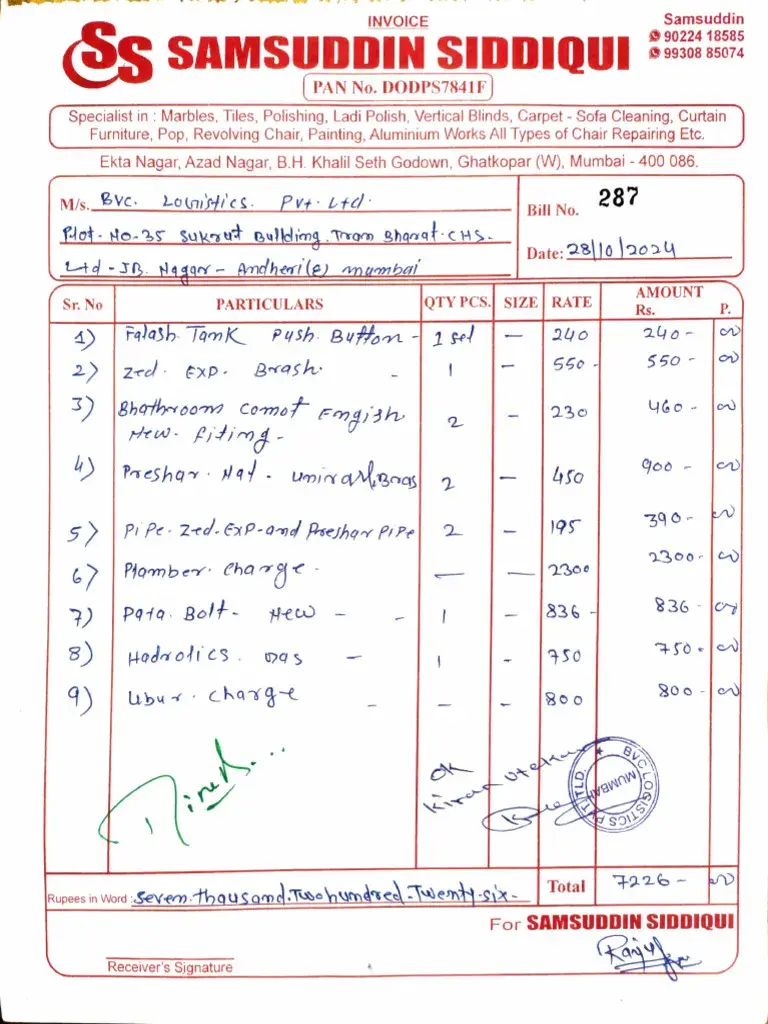 INVOICE
Samsuddin
90224 18585
99308 85074
SS SAMSUDDIN SIDDIQUI
PAN No. DODPS7841F
Specialist in : Marbles, Tiles, Polishing, Ladi Polish, Vertical Blinds, Carpet - Sofa Cleaning, Curtain
Furniture, Pop, Revolving Chair, Painting, Aluminium Works All Types of Chair Repairing Etc.
Ekta Nagar, Azad Nagar, B.H. Khalil Seth Godown, Ghatkopar (W), Mumbai - 400 086.
M/s. BVC. Logistics. Pvt. Ltd.
Bill No. 287
Plot-No-35 Sukrut Building. Tram Bharat-CHS-
Date: 28/10/2024
Ltd-JB. Nagar-Andheri(e) mumbai
Sr. No PARTICULARS QTY PCS. SIZE RATE AMOUNT Rs. P.
1) Falash Tank Push Button - 1 set - 240 240- 00
2) Zed. EXP. Brash. - 1 - 550- 550- 00
3) Bhathroom comot Emgish 2 - 230 460- 00
New. fiting-
4) Preshar. Nat- 2 - 450 900- 00
5) Pipe. Zed-EXP-and Preshar Pipe 2 - 195 390- 00
6) Plamber. charge- - - 2300 2300- 00
7) Pata. Bolt- New - - 1 - 836- 836- 00
8) Hadrolics. - 1 - 750 750- 00
9) Ubur. charge - - - 800 800- 00
OK
Kiran Utekar
BVC LOGISTICS PVT. LTD.
MUMBAI
Rupees in Word : Seven-thausand-Twohundred-Twenty-six-
Total 7226- 00
For SAMSUDDIN SIDDIQUI
Receiver's Signature